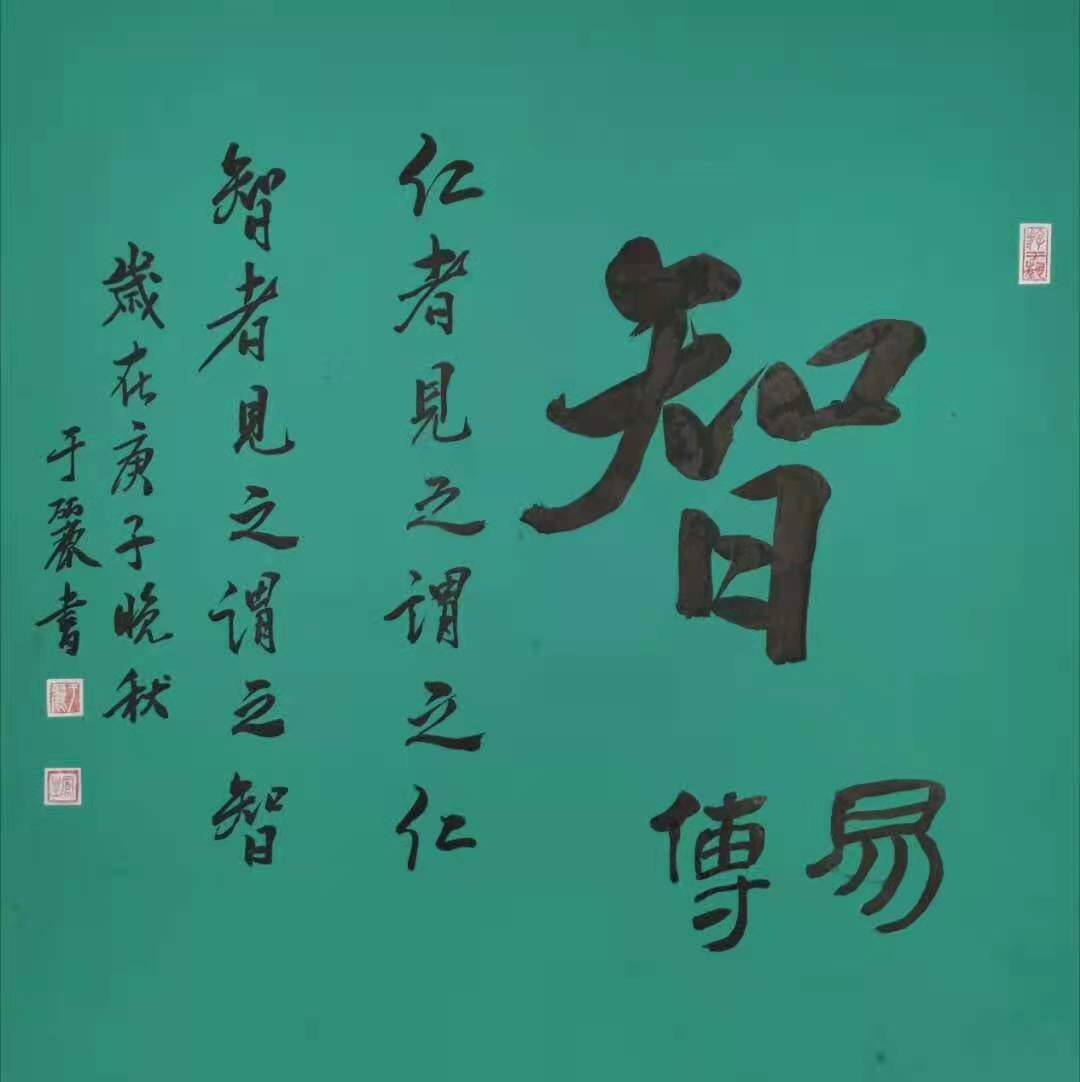 智
易傳
仁者見之謂之仁
智者見之謂之智
歲在庚子晚秋
于麗書